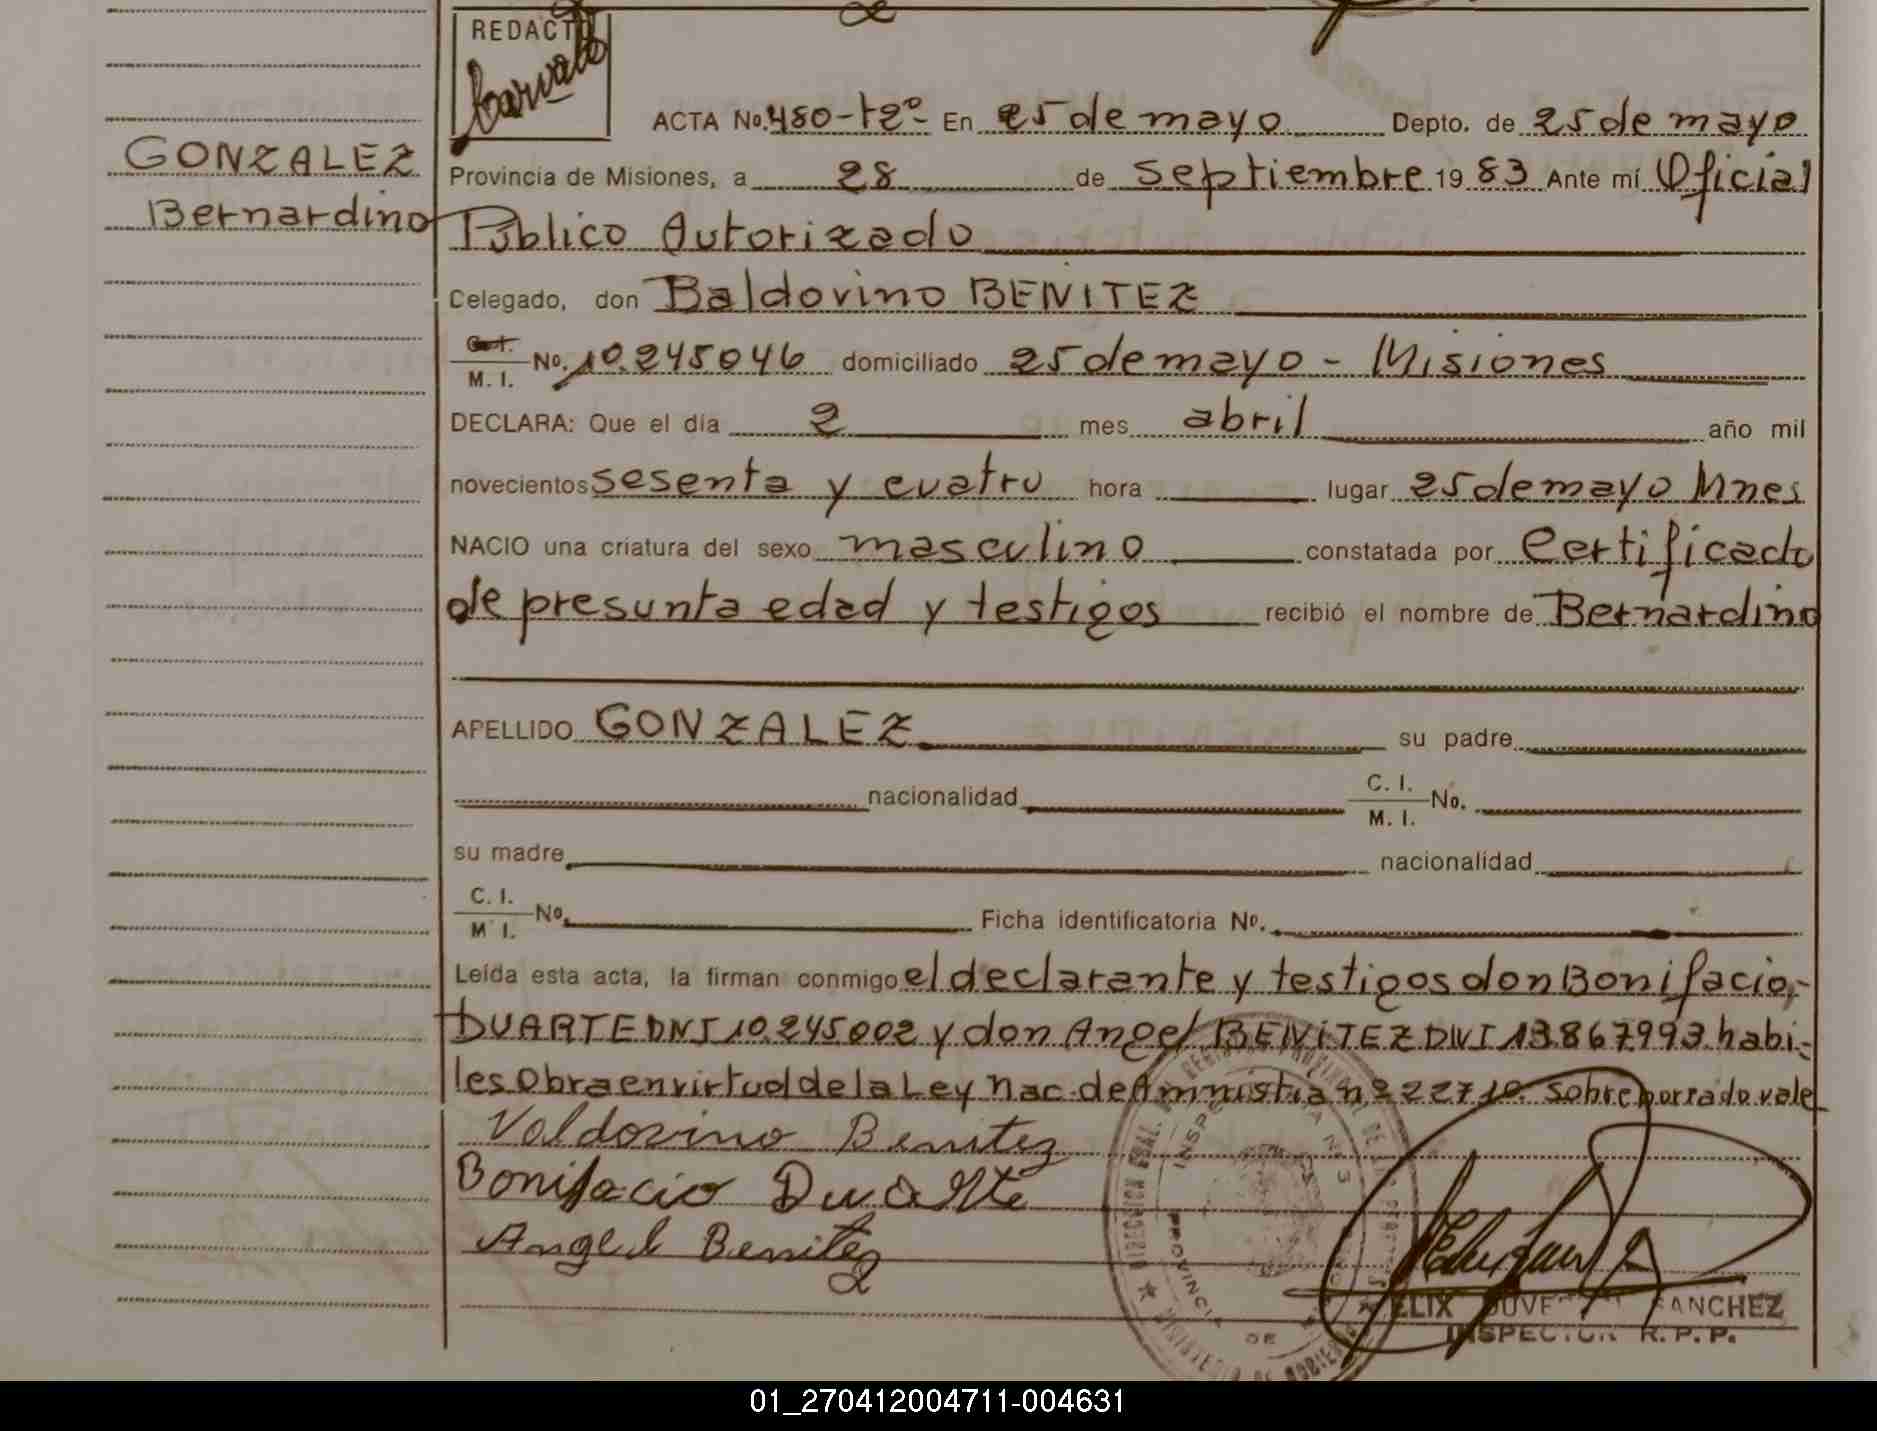 REDACTO
ACTA No. 480-tº2- En 25 de mayo Depto. de 25 de mayo
GONZALEZ
Bernardino
Provincia de Misiones, a 28 de Septiembre 1983 Ante mí Oficial
Público Autorizado
Celegado, don Baldovino BENITEZ
C.I. M. I. No. 10.245046 domiciliado 25 de mayo - Misiones
DECLARA: Que el día 2 mes abril año mil
novecientos sesenta y cuatro hora lugar 25 de mayo Mnes
NACIO una criatura del sexo masculino constatada por Certificado
de presunta edad y testigos recibió el nombre de Bernardino
APELLIDO GONZALEZ su padre
nacionalidad C. I. M. I. No.
su madre nacionalidad
C. I. M I. No. Ficha identificatoria No.
Leída esta acta, la firman conmigo el declarante y testigos don Bonifacio,-
DUARTE DNI 10.245002 y don Angel BENITEZ DNI 13.867.993. habi-
les Obra en virtud de la Ley Nac. de Amnistia nº 22710. Sobre borrado vale
Valdovino Benitez
Bonifacio Duarte
Angel Benitez
SANCHEZ
INSPECTOR R. P. P.
PROVINCIA DE
01_270412004711-004631